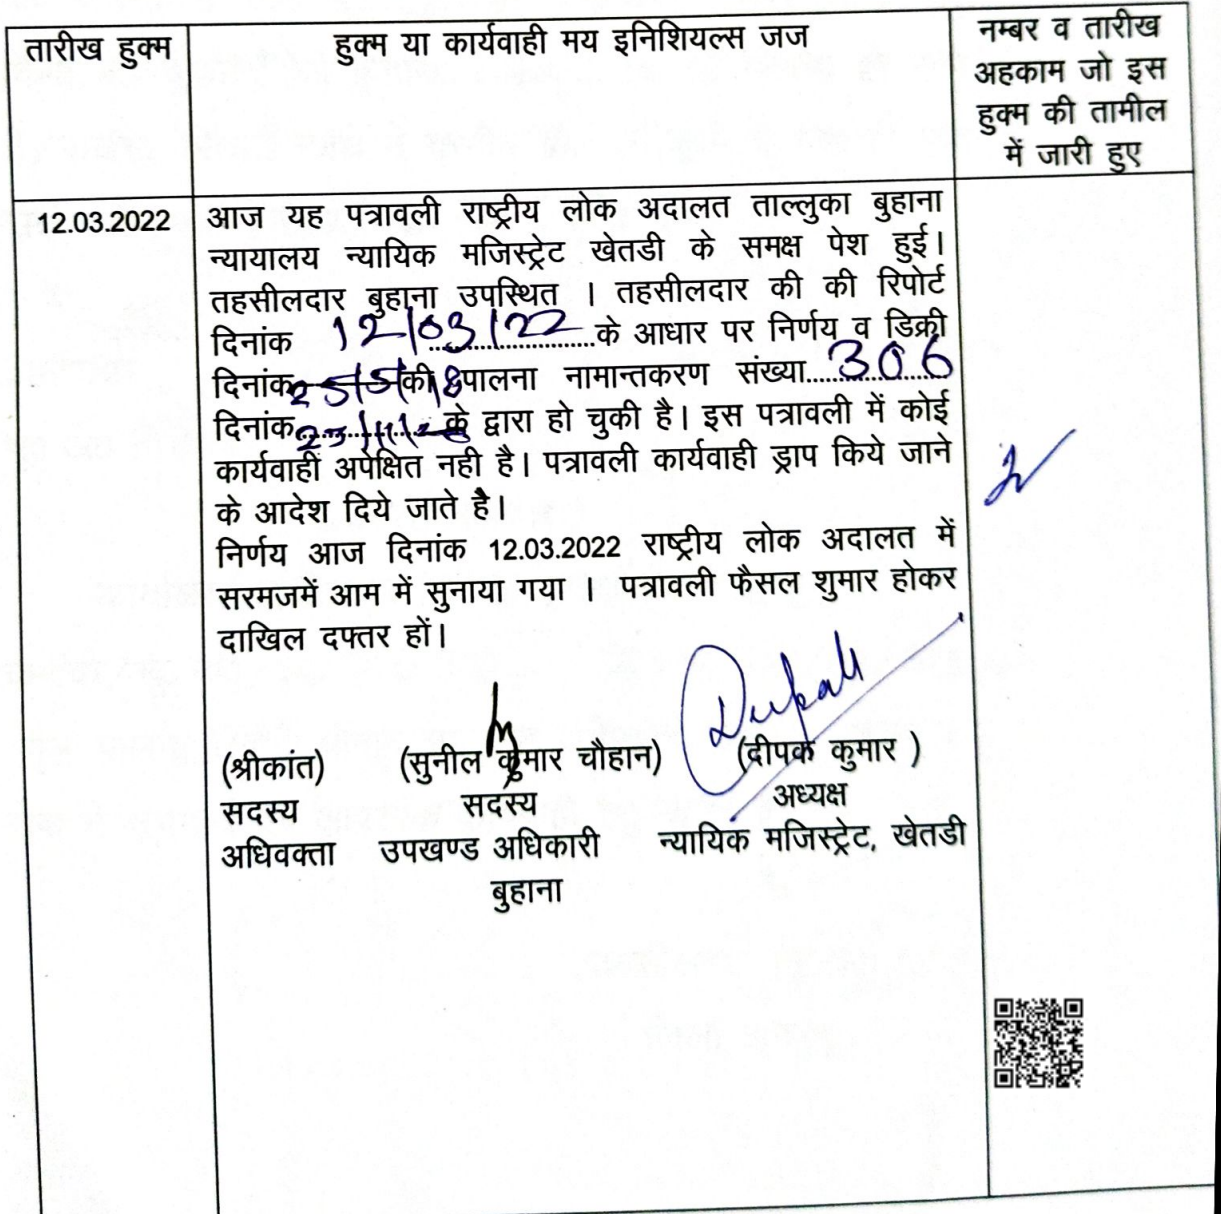 तारीख हुक्म
हुक्म या कार्यवाही मय इनिशियल्स जज
नम्बर व तारीख
अहकाम जो इस
हुक्म की तामील
में जारी हुए
12.03.2022
आज यह पत्रावली राष्ट्रीय लोक अदालत ताल्लुका बुहाना
न्यायालय न्यायिक मजिस्ट्रेट खेतडी के समक्ष पेश हुई।
तहसीलदार बुहाना उपस्थित । तहसीलदार की की रिपोर्ट
दिनांक 12/03/22 के आधार पर निर्णय व डिक्री
दिनांक 25/5/18 की पालना नामान्तकरण संख्या 306
दिनांक के द्वारा हो चुकी है। इस पत्रावली में कोई
कार्यवाही अपेक्षित नही है। पत्रावली कार्यवाही ड्राप किये जाने
के आदेश दिये जाते है।
निर्णय आज दिनांक 12.03.2022 राष्ट्रीय लोक अदालत में
सरमजमें आम में सुनाया गया । पत्रावली फैसल शुमार होकर
दाखिल दफ्तर हों।
(श्रीकांत) (सुनील कुमार चौहान) (दीपक कुमार )
सदस्य सदस्य अध्यक्ष
अधिवक्ता उपखण्ड अधिकारी न्यायिक मजिस्ट्रेट, खेतडी
बुहाना